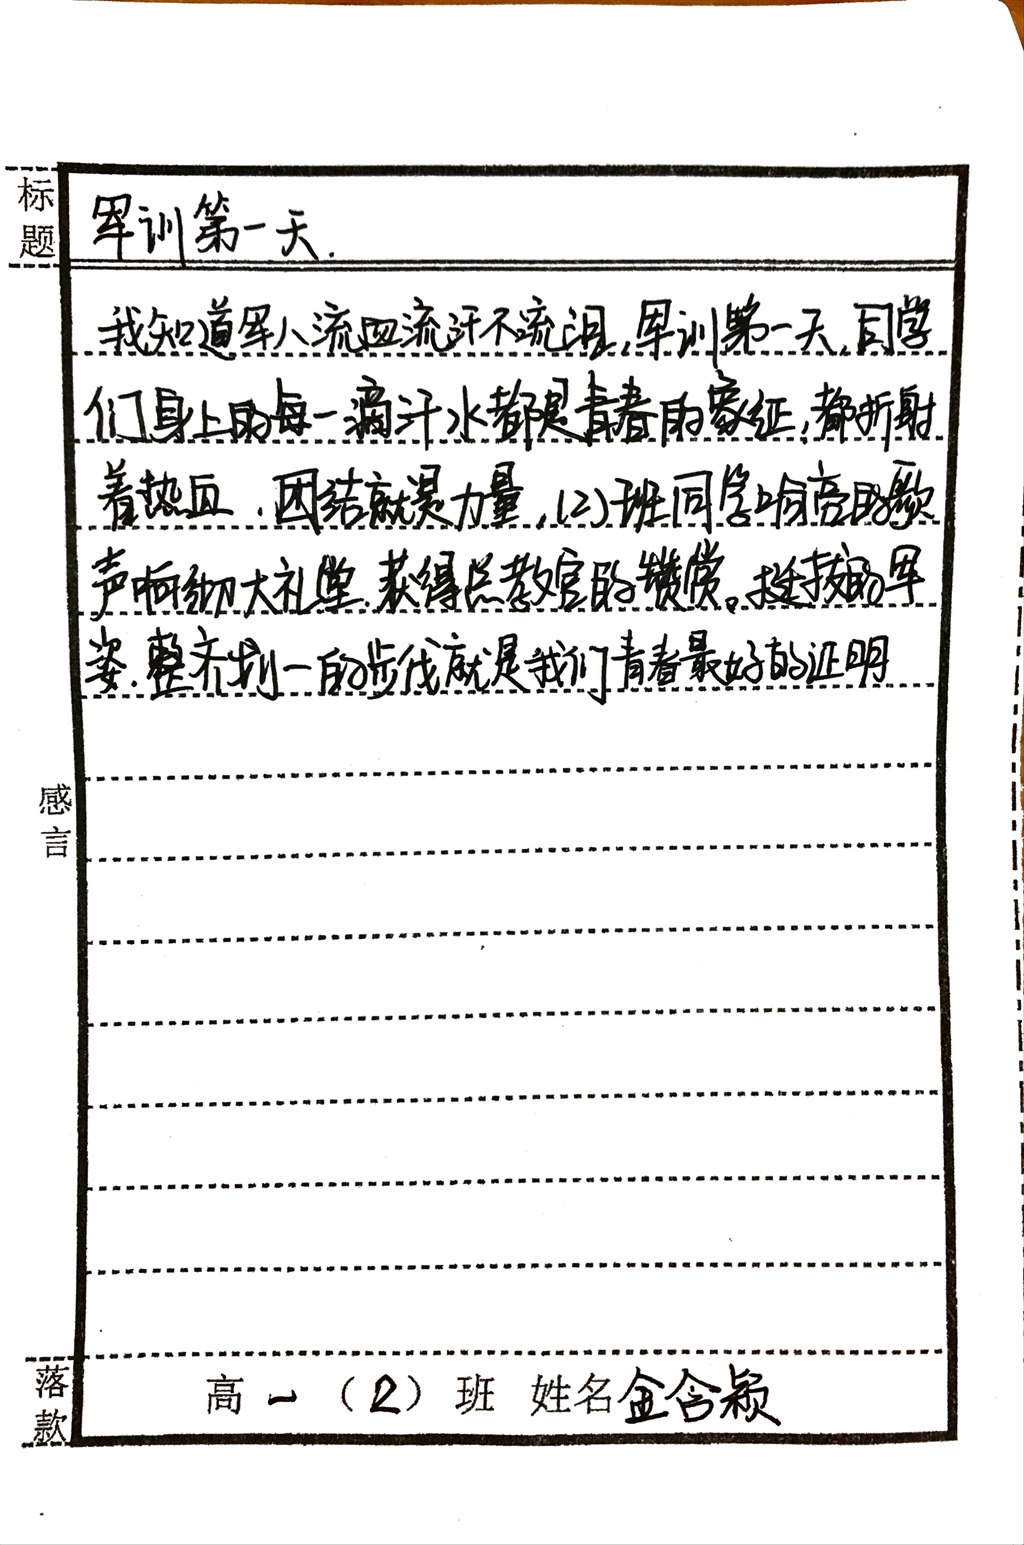 标题
军训第一天.
我知道军人流血流汗不流泪,军训第一天,同学
们身上的每一滴汗水都是青春的象征,都折射
着热血.团结就是力量,(2)班同学响亮的歌
声响彻大礼堂.获得总教官的赞赏。挺拔的军
姿.整齐划一的步伐就是我们青春最好的证明
感言
落款
高一(2)班 姓名金含颖